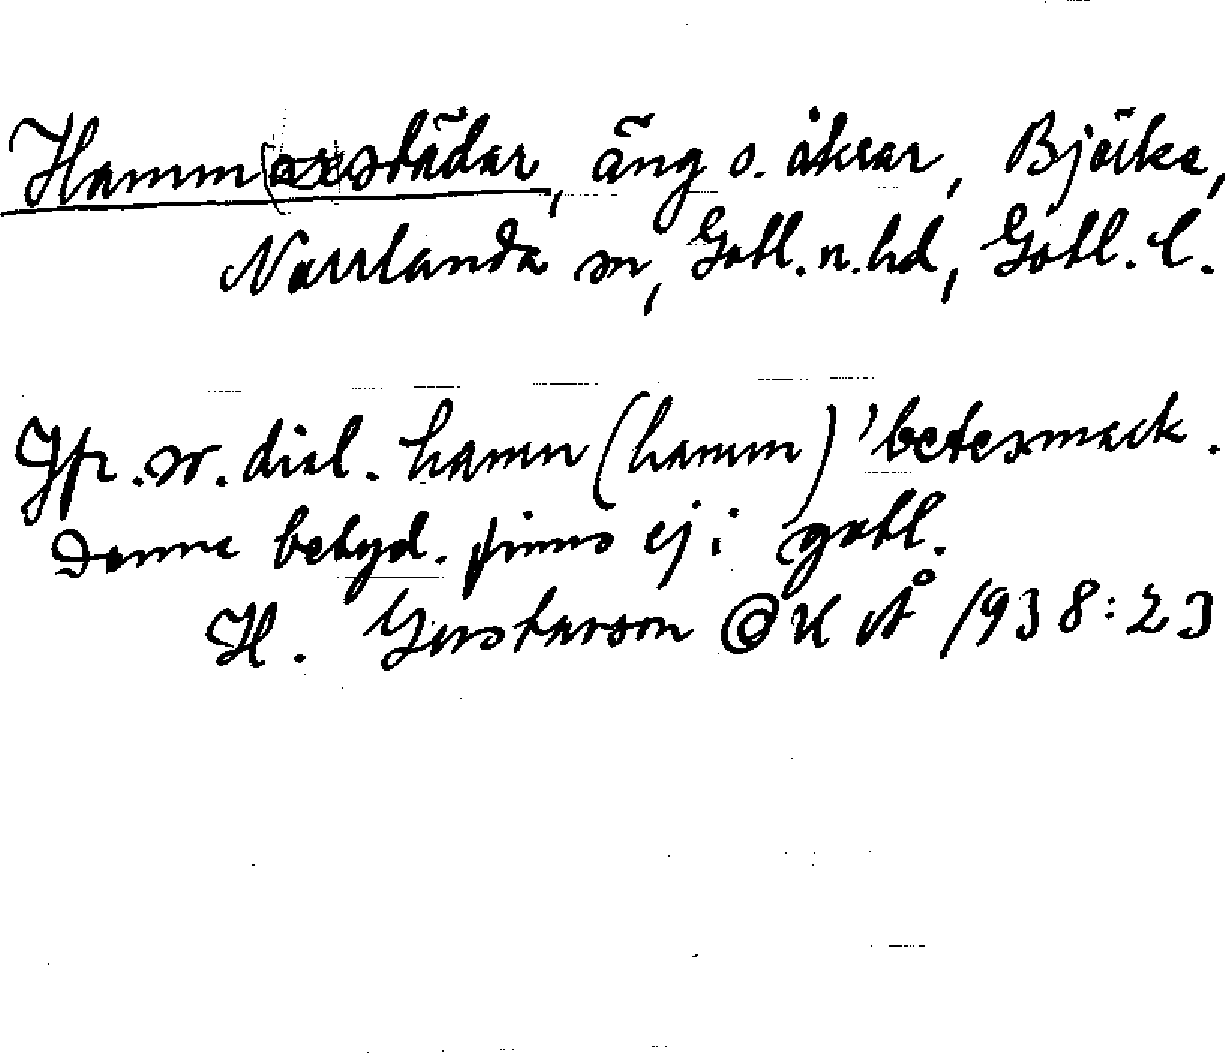 Hamm(arstädar, äng o. åkrar, Björke,
Norrlanda sn, Gotl. n. hd, Gotl. l.
Jfr. sv. dial. hamn (hamm) 'betesmark.
Denna betyd. finns ej i gotl.
H. Gustavson GKÅ 1938:23